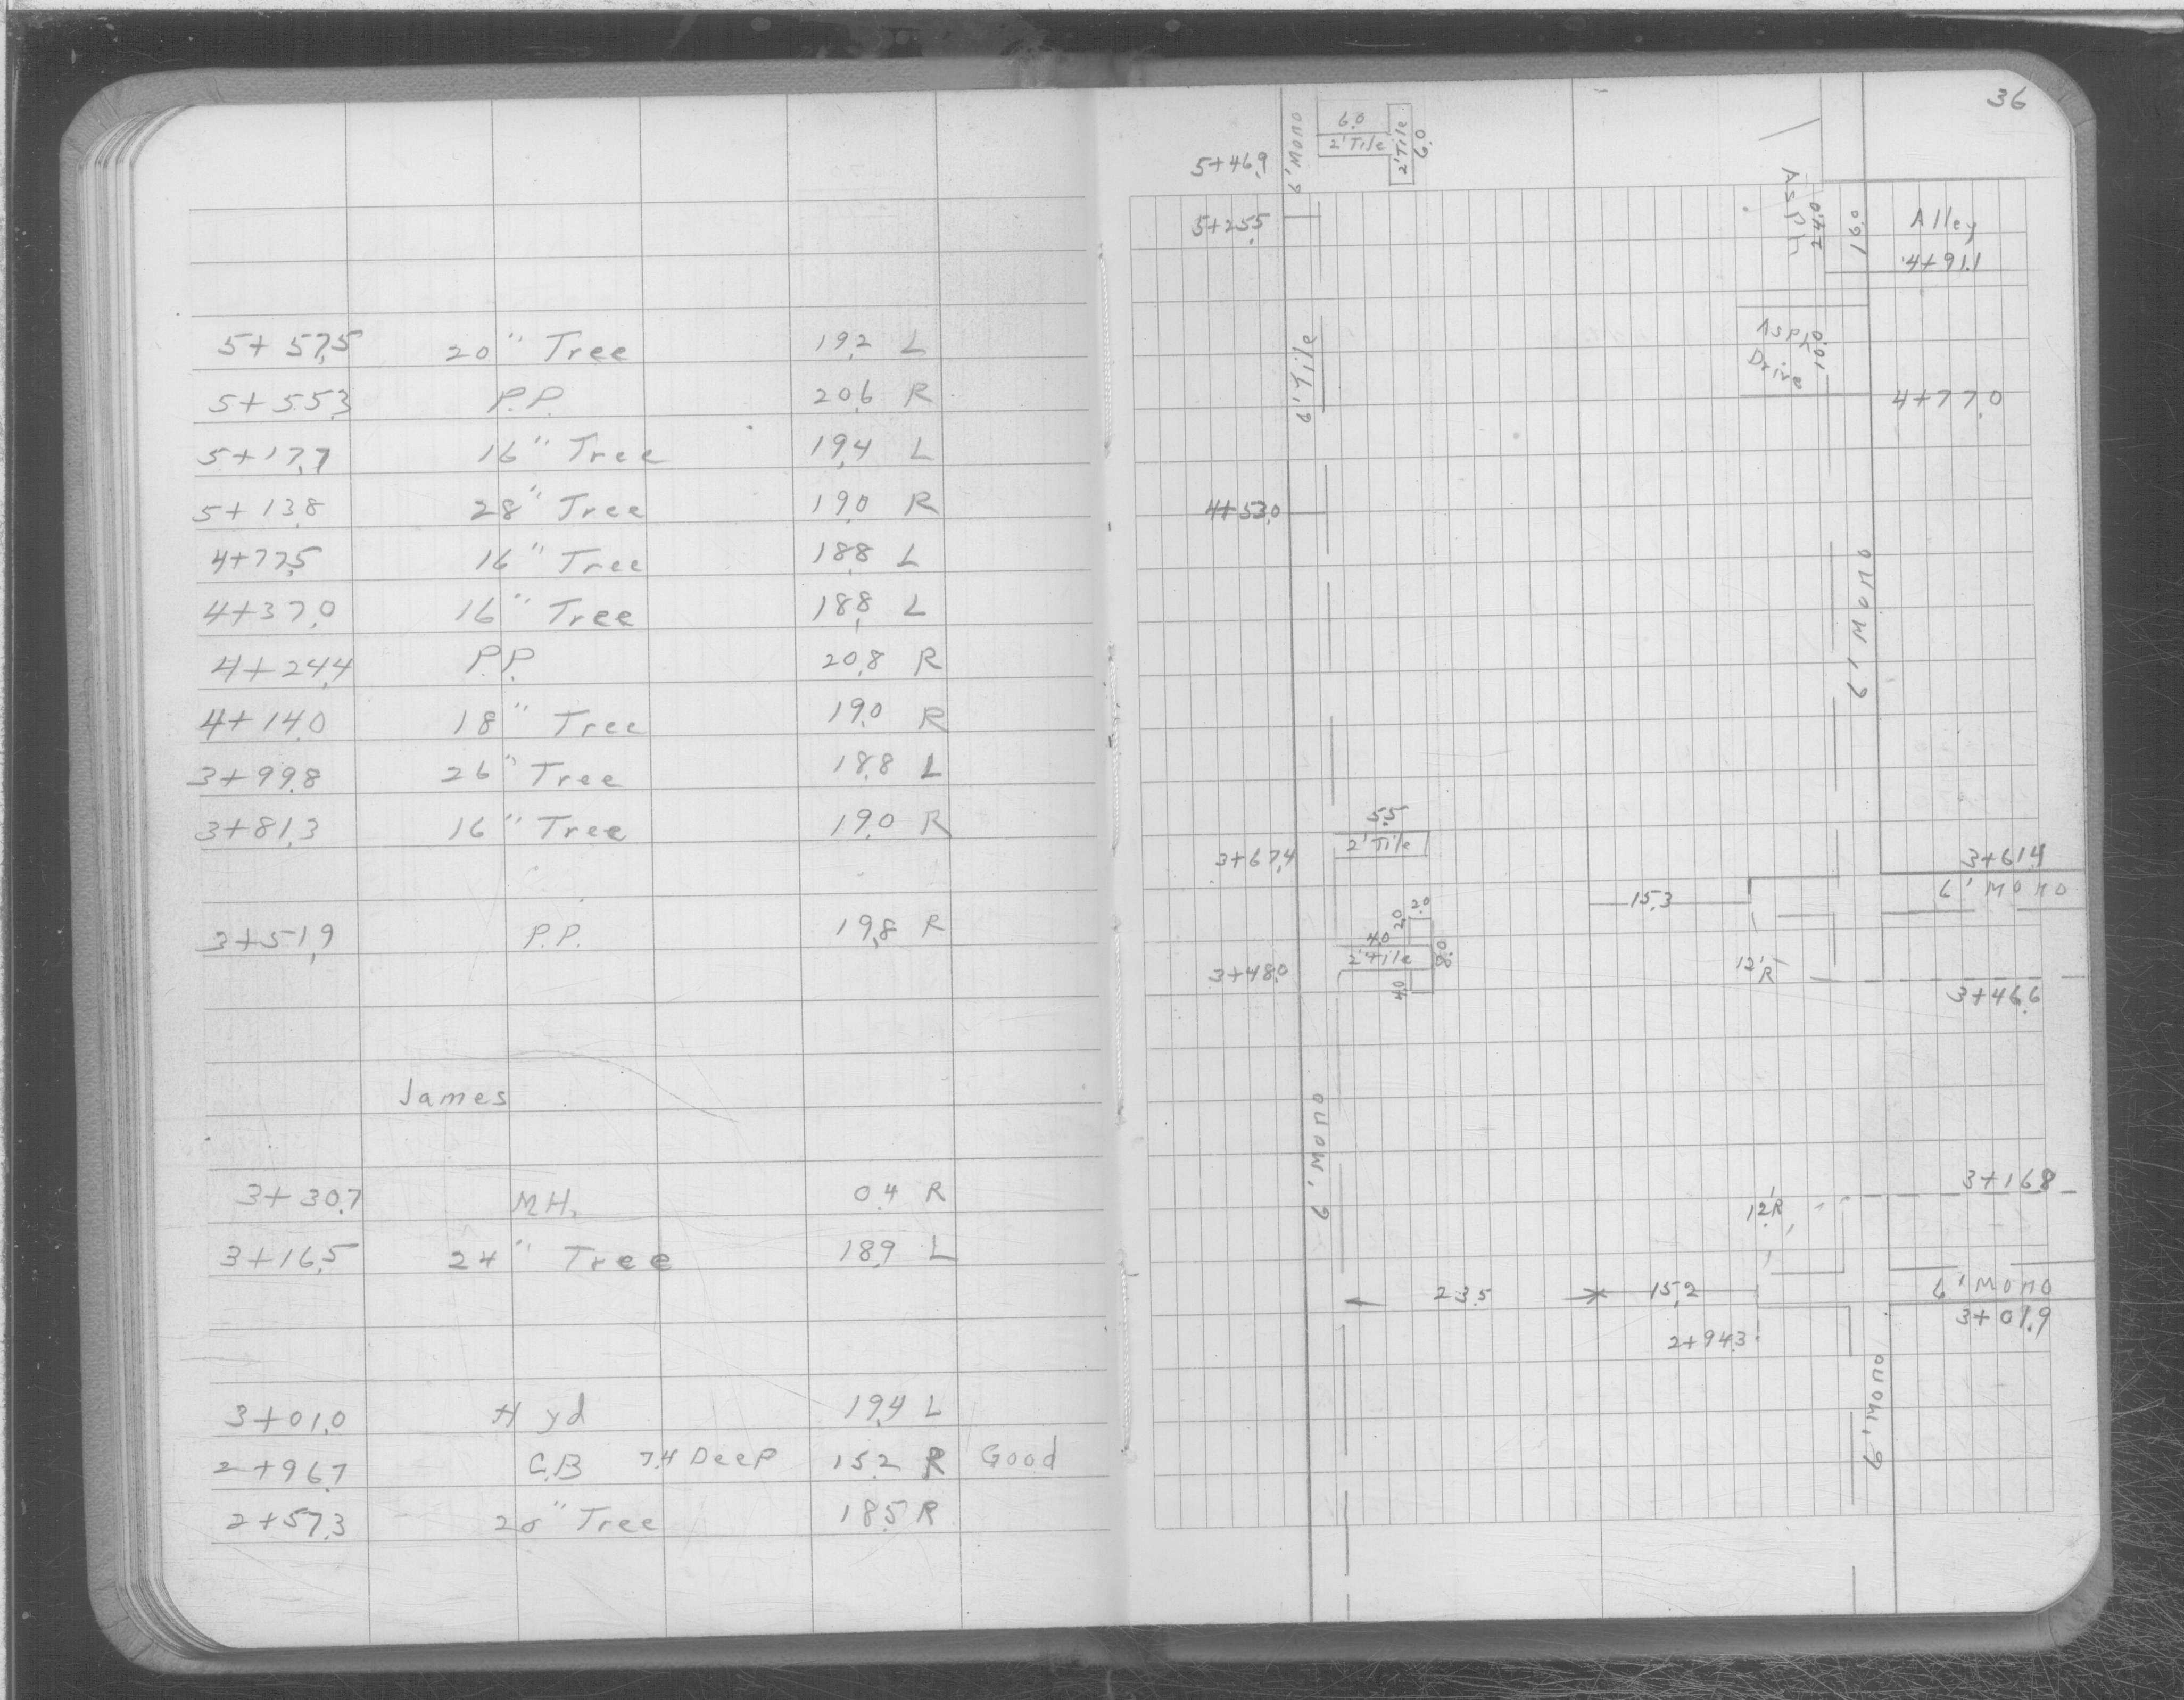 5+57.5 20" Tree 19.2 L
5+55.3 P.P. 20.6 R
5+17.7 16" Tree 19.4 L
5+13.8 28" Tree 19.0 R
4+77.5 16" Tree 18.8 L
4+37.0 16" Tree 18.8 L
4+24.4 P.P. 20.8 R
4+14.0 18" Tree 19.0 R
3+99.8 26" Tree 18.8 L
3+81.3 16" Tree 19.0 R
3+51.9 P.P. 19.8 R
James
3+30.7 M.H. 0.4 R
3+16.5 24" Tree 18.9 L
3+01.0 Hyd 19.4 L
2+96.7 C.B 7.4 Deep 15.2 R Good
2+57.3 Tree 18.5 R
36
6' Mono
6.0
2' Tile
2' Tile
6.0
5+46.9
5+25.5
Asph
24.0
16.0
Alley
4+91.1
6' Tile
Asph
Drive
10.0
4+77.0
4+53.0
6' Mono
5.5
2' Tile
3+67.4
3+61.4
6' Mono
15.3
2.0
2.0
4.0
2' Tile
8.0
4.0
3+48.0
12'R
3+46.6
6' Mono
3+16.8
12'R
23.5
15.2
6' Mono
3+01.9
2+94.3
6' Mono